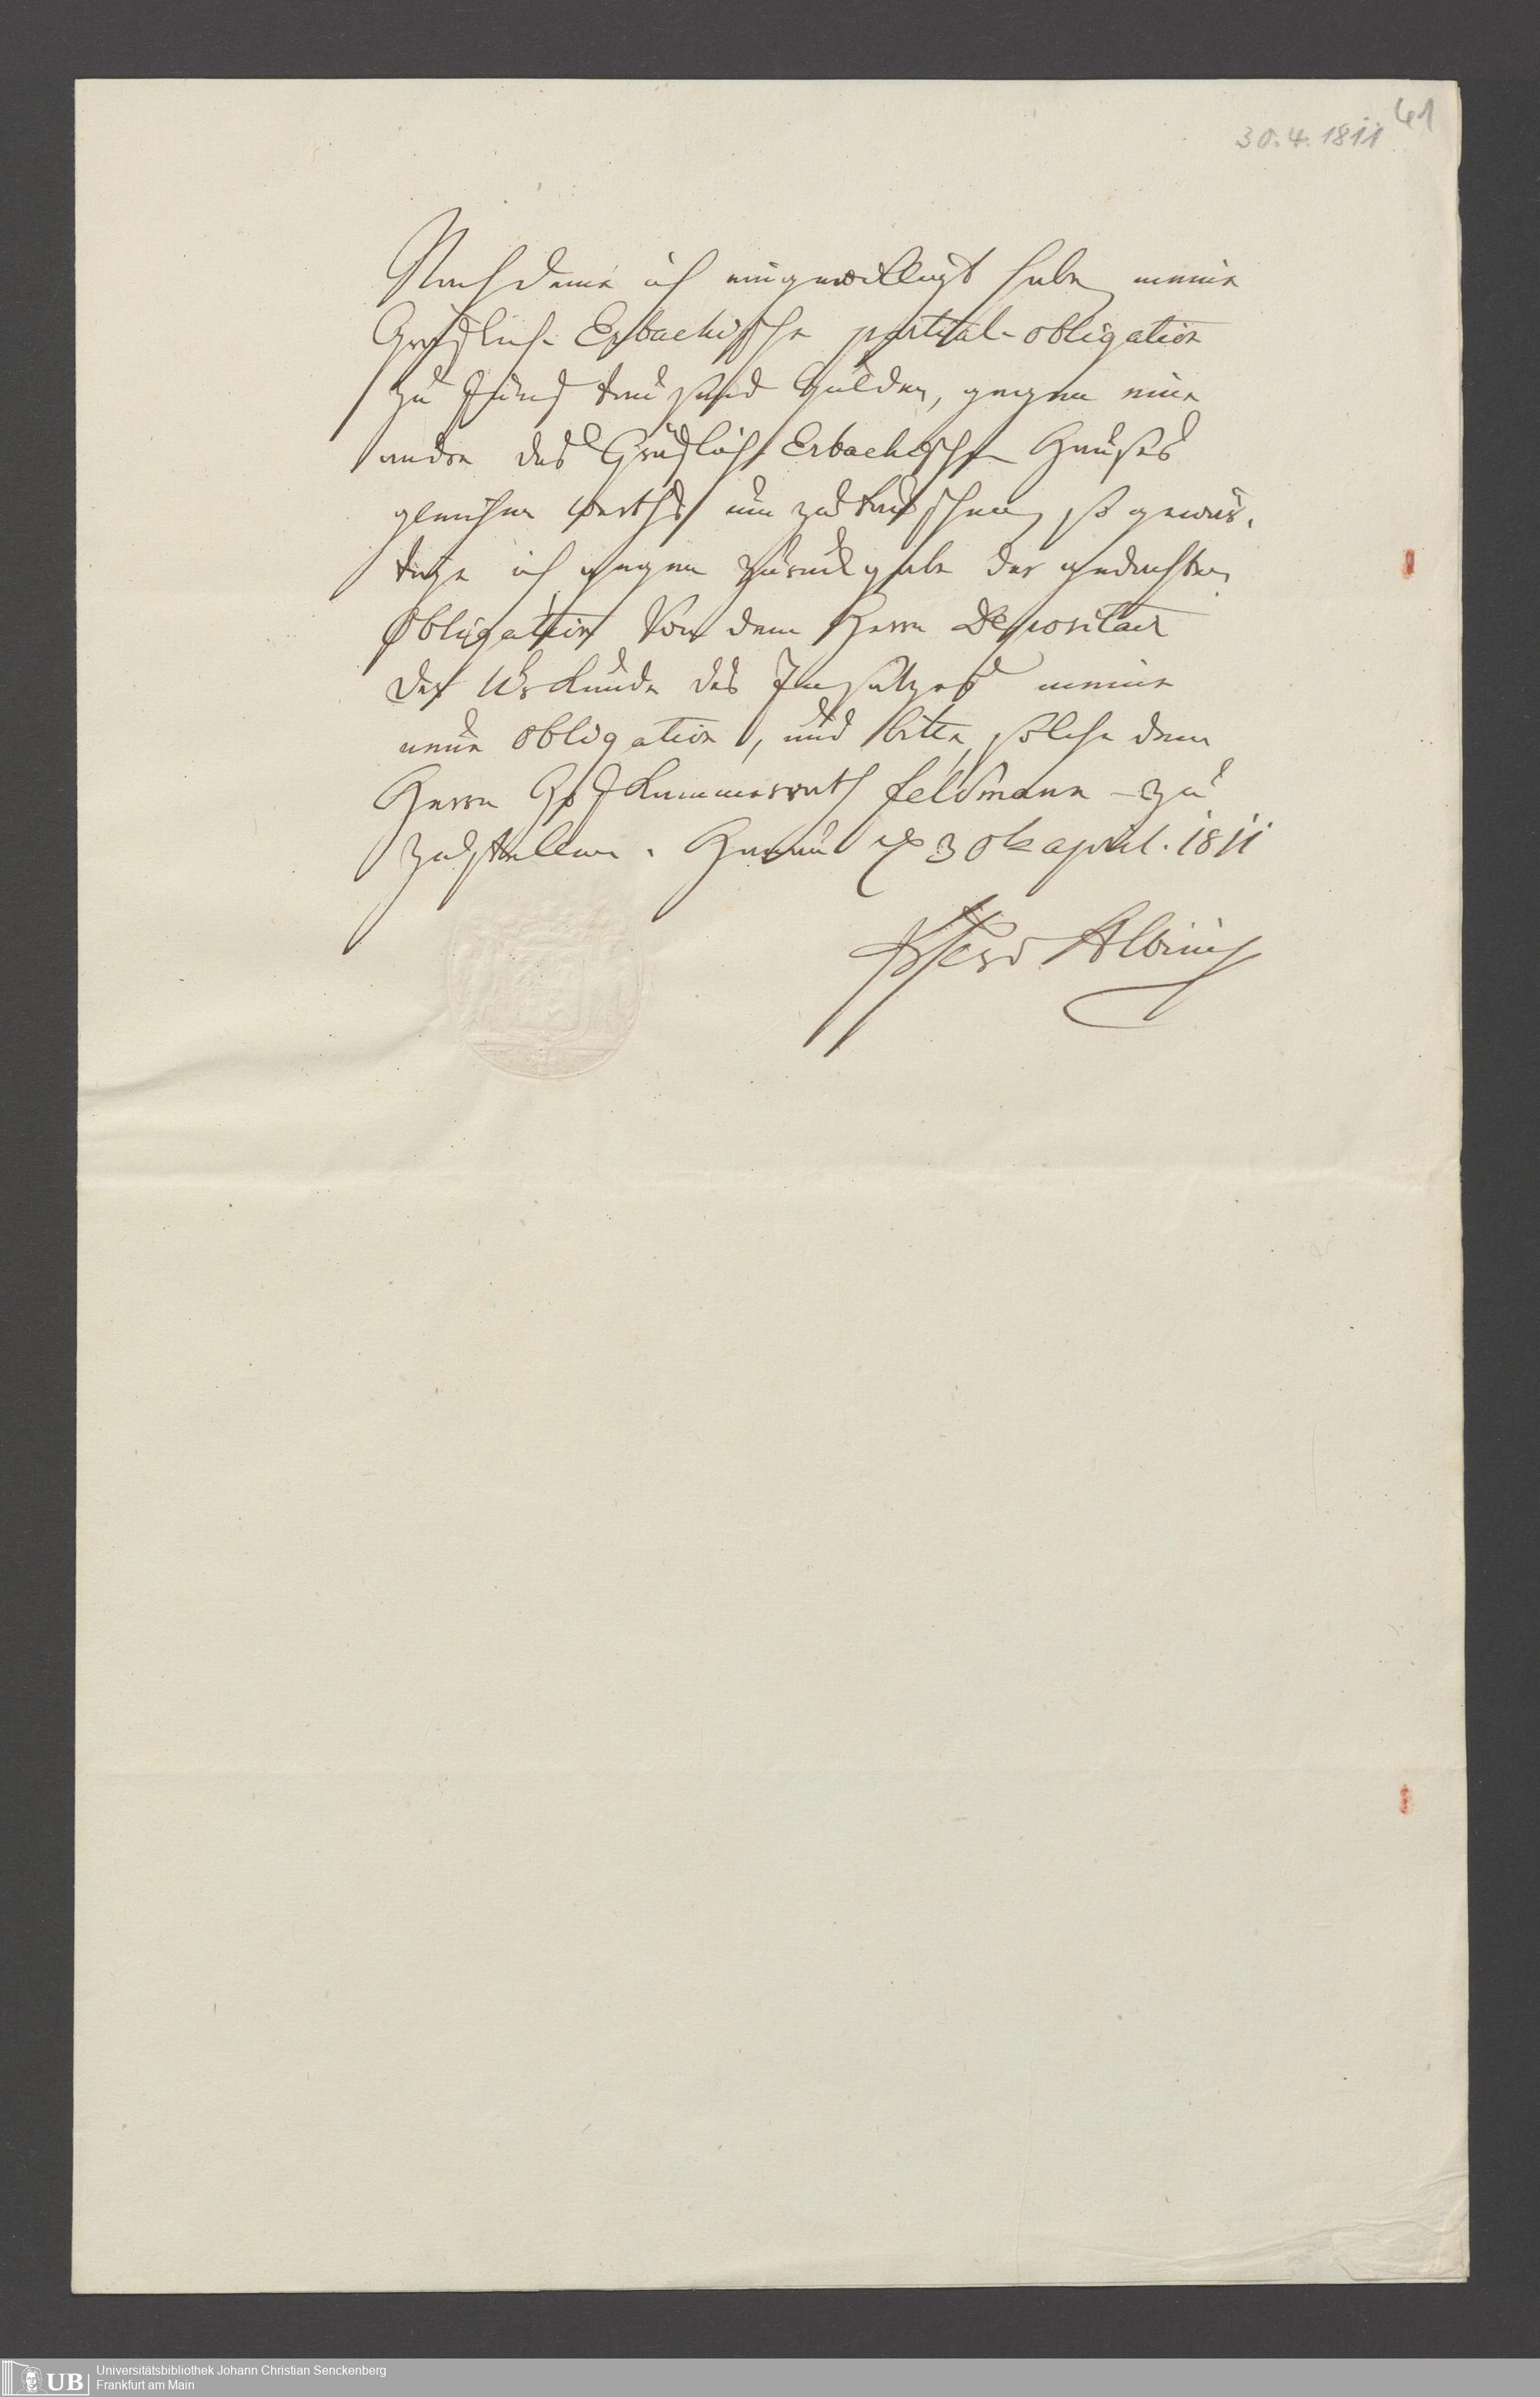 41
30.4.1811
Nachdeme ich eingewilligt habe, meine
Gräflich Erbachische partial-obligation
zu fünf tausend Gulden, gegen eine
andre des Gräflich Erbachischen Hauses
gleichen werths um zu tauschen, so gewär-
tige ich gegen Zurückgabe der gedachten
Obligation Von dem Herrn Depositair
der Urkunde des Insatzes meine
neue obligation, und bitte, solche dem
Herrn Hofkammerrath feldmann zu
zustellen. Hanau 30te april. 1811
Albini
UB
Universitätsbibliothek Johann Christian Senckenberg
Frankfurt am Main